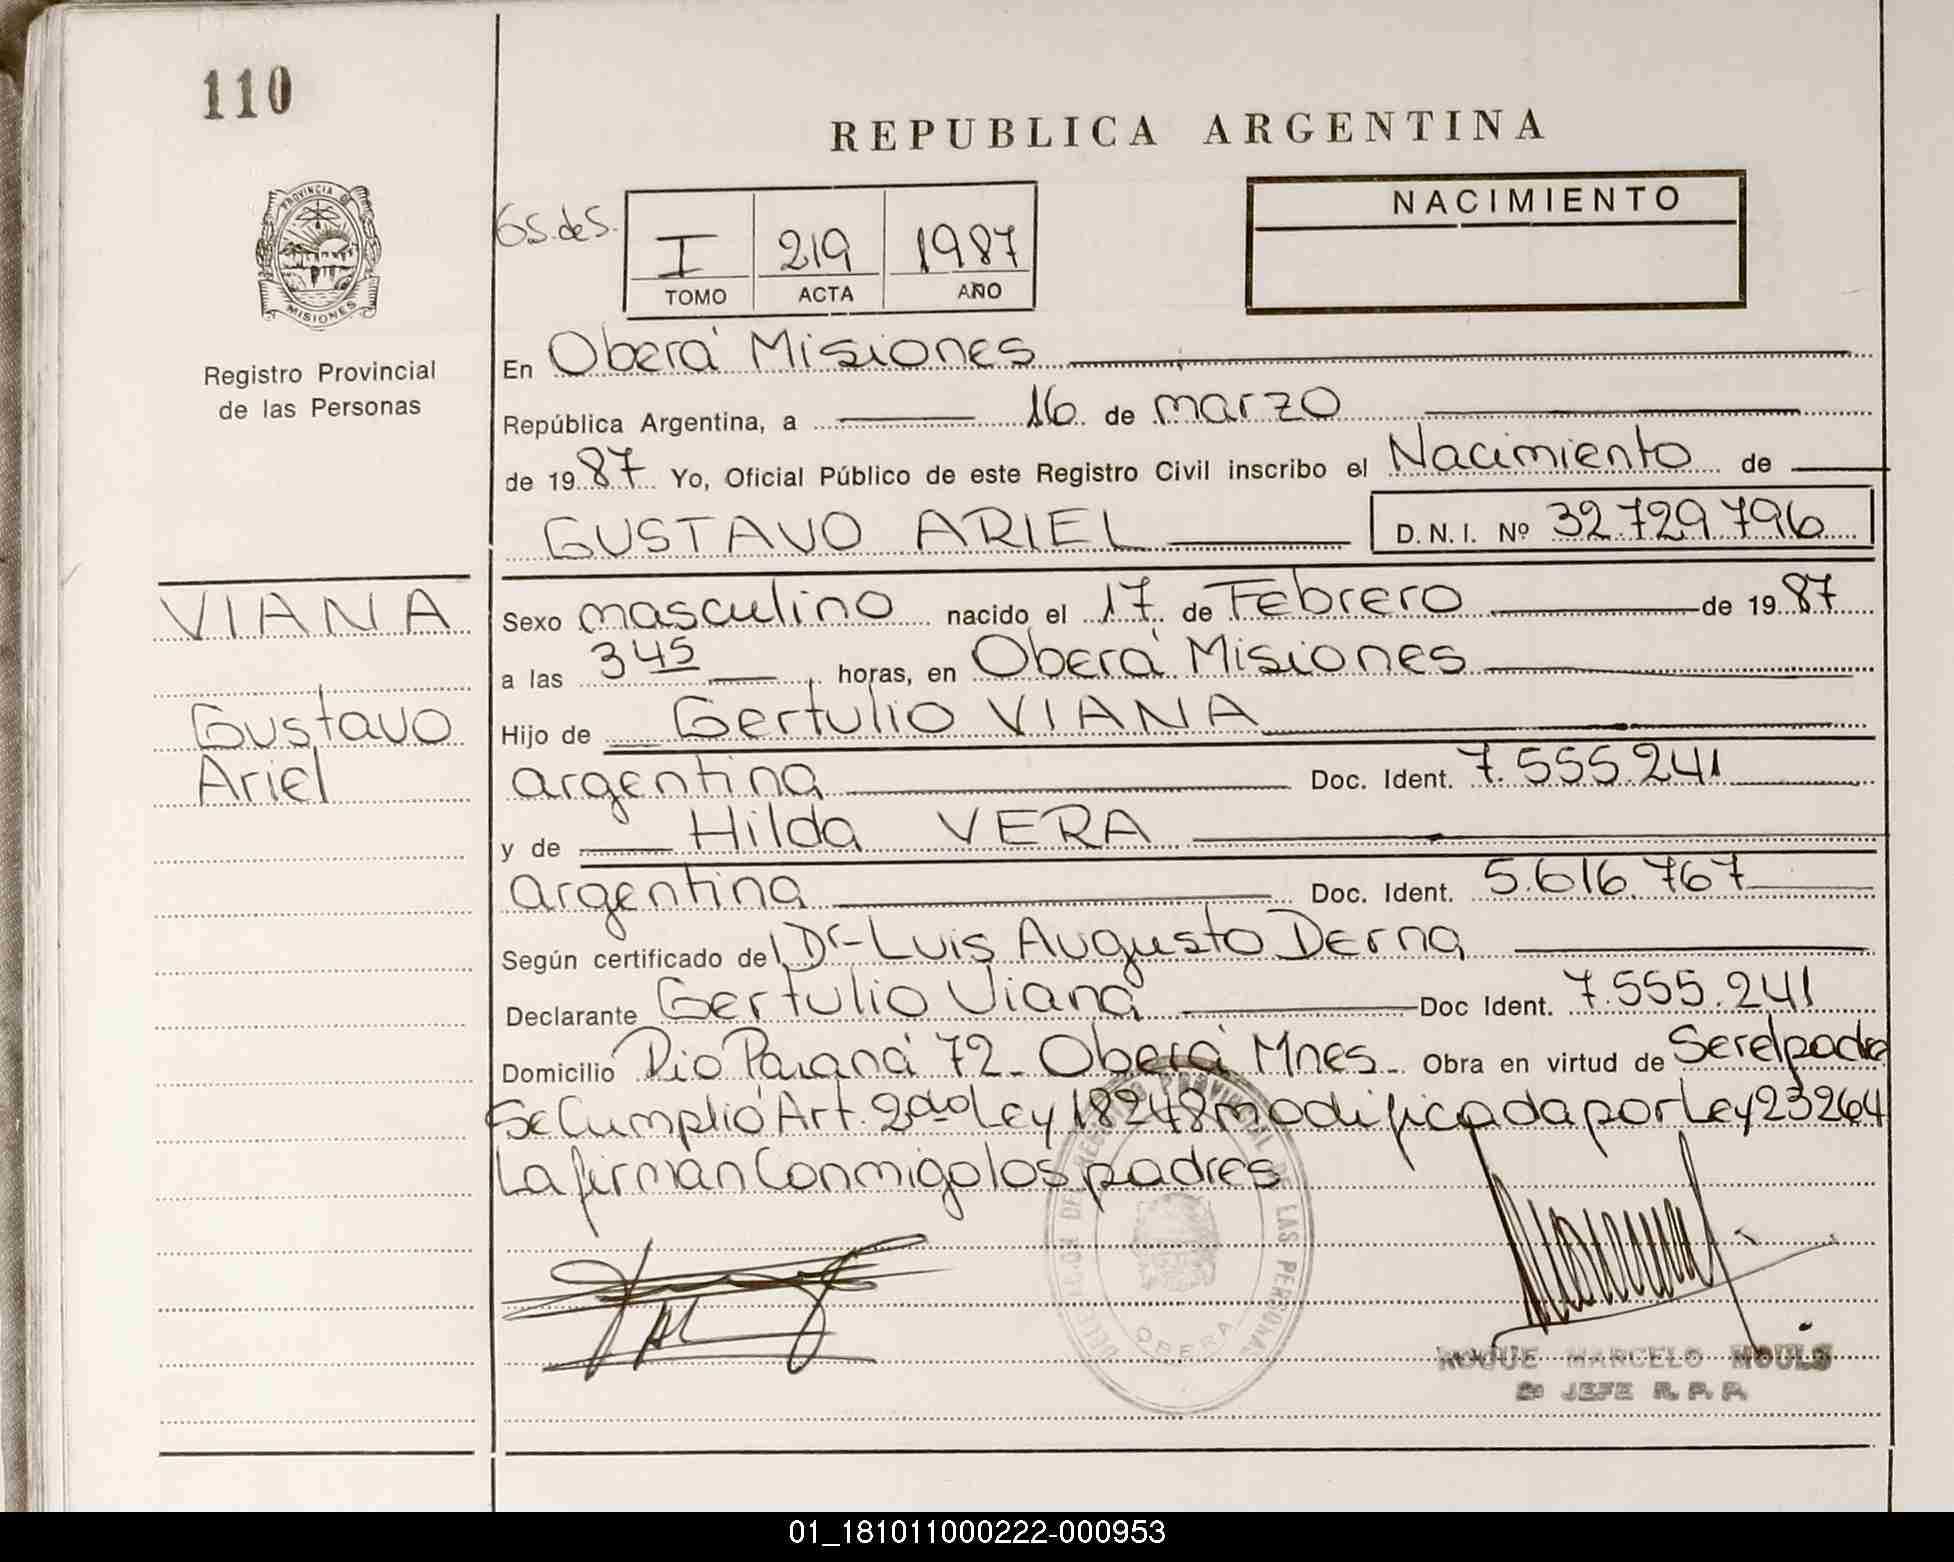 110
REPUBLICA ARGENTINA
NACIMIENTO
I 219 1987
TOMO ACTA AÑO
PROVINCIA DE
MISIONES
Registro Provincial
de las Personas
En Oberá Misiones
República Argentina, a 16 de marzo
de 1987 Yo, Oficial Público de este Registro Civil inscribo el Nacimiento de
GUSTAVO ARIEL D.N.I. Nº 32.729.796
VIANA
Gustavo
Ariel
Sexo masculino nacido el 17 de Febrero de 1987
a las 3 45 horas, en Oberá Misiones
Hijo de Gertulio VIANA
argentina Doc. Ident. 7.555.241
y de Hilda VERA
argentina Doc. Ident. 5.616.767
Según certificado de Dr- Luis Augusto Derna
Declarante Gertulio Viana Doc Ident. 7.555.241
Domicilio Rio Paraná 72- Oberá Mnes- Obra en virtud de Ser el padre
Se Cumplió Art. 2do Ley 18248 modificada por Ley 23264
La firman Conmigo los padres
DEL REGISTRO PROVINCIAL DE LAS PERSONAS
OBERA
ROQUE MARCELO MOULS
2º JEFE R.P.P.
01_181011000222-000953